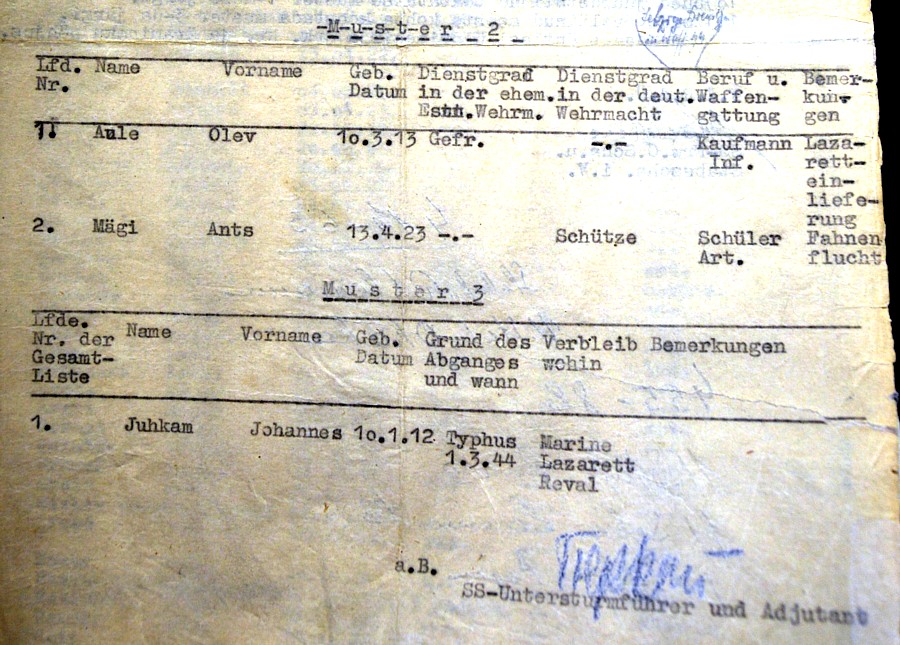 -M-u-s-t-e-r 2-
Lfd. Name Vorname Geb. Dienstgrad Dienstgrad Beruf u. Bemer-
Nr. Datum in der ehem. in der deut. Waffen- kun-
Estn.Wehrm. Wehrmacht gattung gen
1. Aule Olev 1o.3.13 Gefr. -.- Kaufmann Laza-
Inf. rett-
ein-
liefe-
rung
2. Mägi Ants 13.4.23 -.- Schütze Schüler Fahnen
Art. flucht
M u s t e r 3
Lfde. Name Vorname Geb. Grund des Verbleib Bemerkungen
Nr. der Datum Abganges wohin
Gesamt- und wann
Liste
1. Juhkam Johannes 1o.1.12 Typhus Marine
1.3.44 Lazarett
Reval
a.B.
SS-Untersturmführer und Adjutant